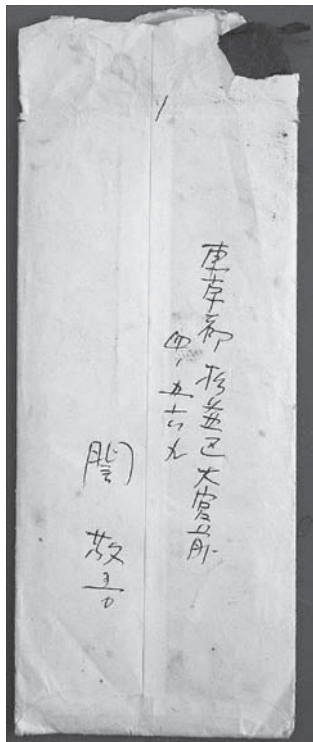 東京都杉並区大宮前
四ノ五六九
関 敬吾